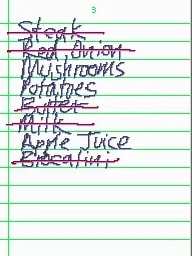 3
Steak
Red Onion
Mushrooms
Potatoes
Butter
Milk
Apple Juice